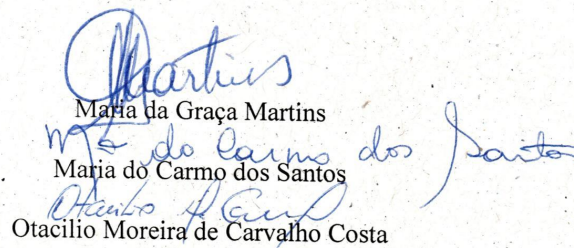 Martins
Maria da Graça Martins
Mª do Carmo dos Santos
Maria do Carmo dos Santos
Otacilio
Otacilio Moreira de Carvalho Costa